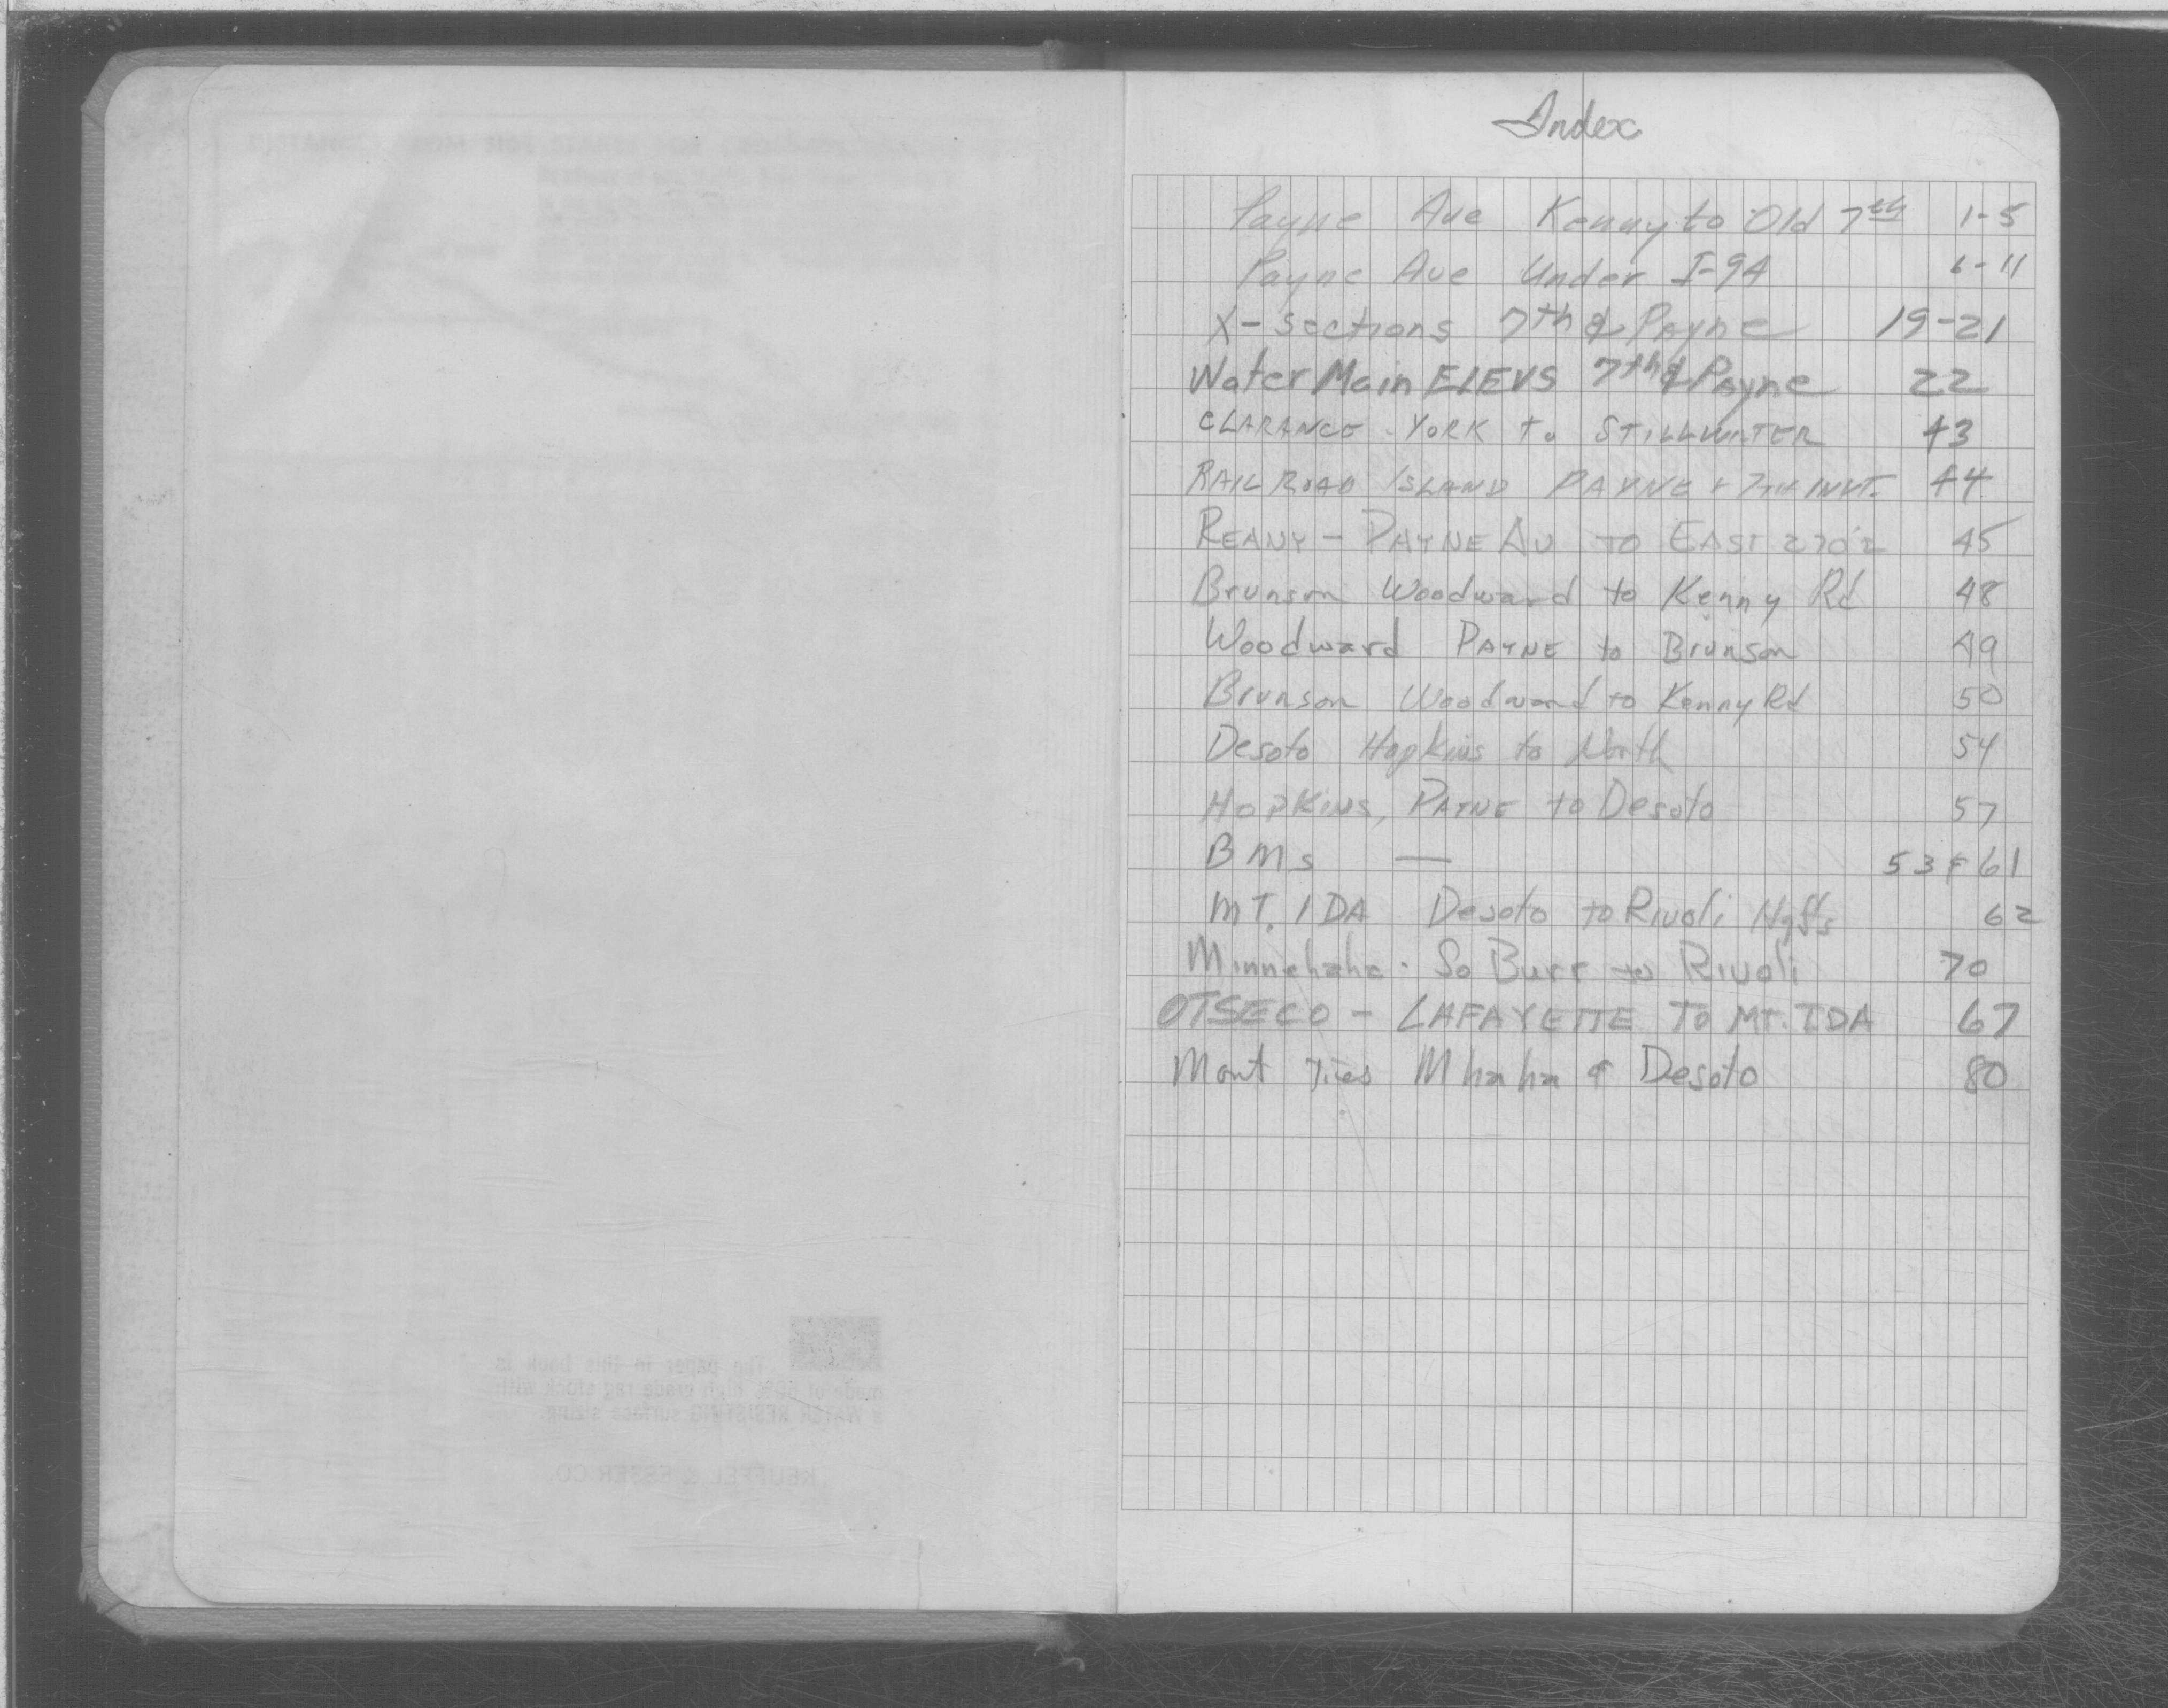 Index
Payne Ave Kenny to Old 7th 1-5
Payne Ave Under I-94 6-11
X-sections 7th & Payne 19-21
Water Main ELEVS 7th & Payne 22
CLARANCE - YORK to STILLWATER 43
RAIL ROAD ISLAND PAYNE & 7TH INVT. 44
REANY - PAYNE AV TO EAST 270'± 45
Brunson Woodward to Kenny Rd 48
Woodward PAYNE to Brunson 49
Brunson Woodward to Kenny Rd 50
Desoto Hopkins to North 54
HOPKINS, PAYNE to Desoto 57
BMs — 53 & 61
MT. IDA Desoto to Rivoli 62
Minnehaha - So Burr to Rivoli 70
OTSECO - LAFAYETTE TO MT. IDA 67
Mont Ties Mhaha & Desoto 80
The paper in this book is
made of 50% high grade rag stock with
a WATER RESISTING surface sizing.
KEUFFEL & ESSER CO.